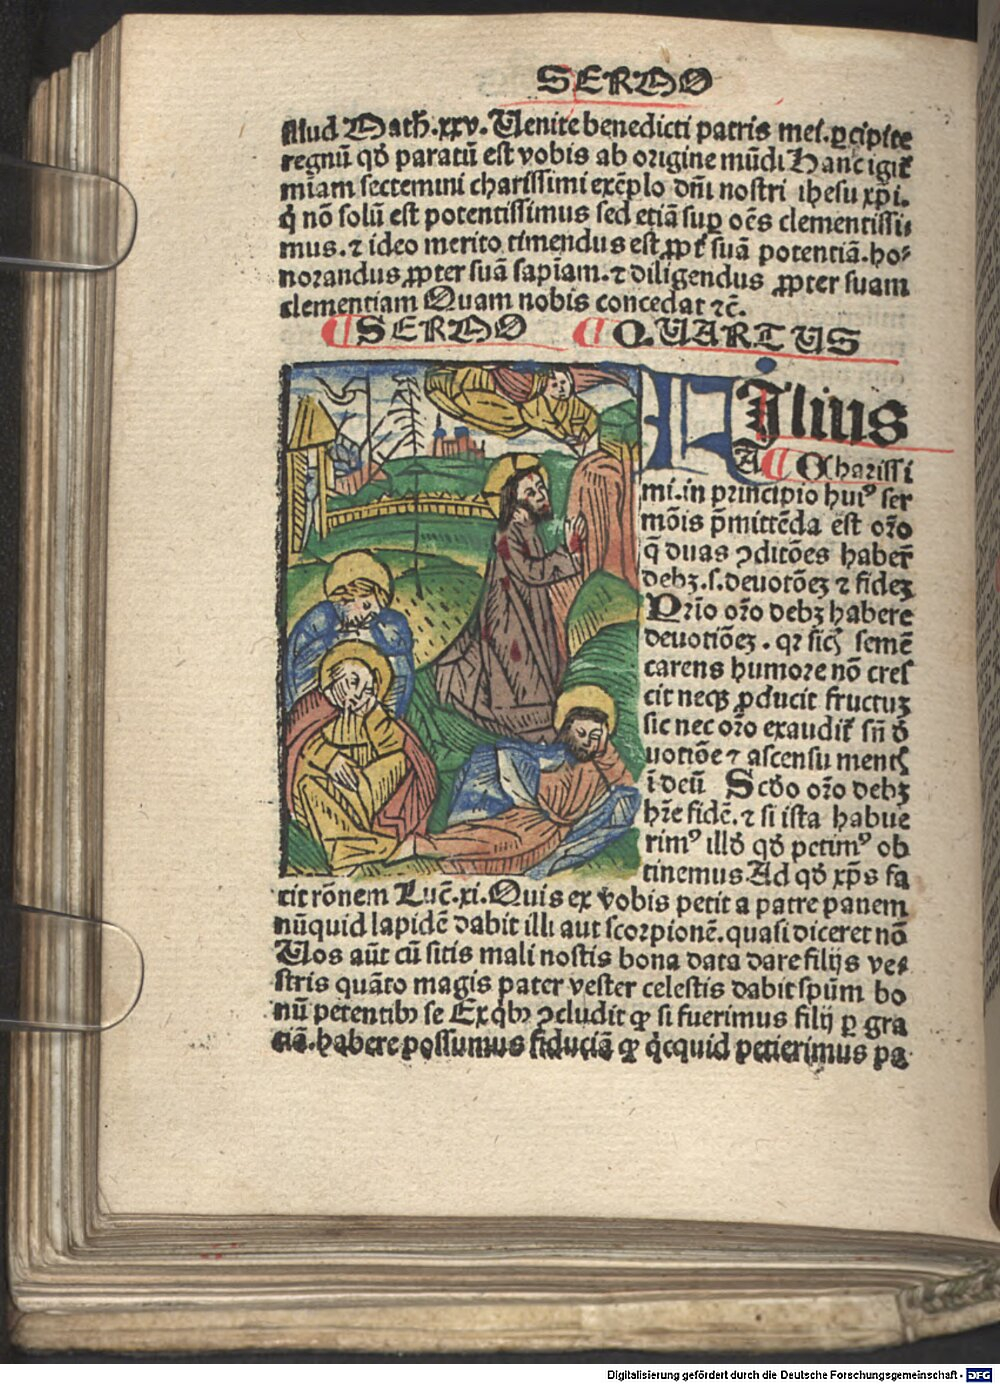 SERMO
illud Math̄.xxv. Uenite benedicti patris mei. ꝑcipite
regnū qḋ paratū est vobis ab origine mūdi Hanc igit᷑
mīam sectemini charissimi exēplo dn̄i nostri ihesu xp̄i.
q̇ nō solū est potentissimus sed etiā suꝑ oēs clementissi
mus. ⁊ ideo merito timendus est ꝓpt᷑ suā potentiā. ho⸗
norandus ꝓpter suā sapīam. ⁊ diligendus ꝓpter suam
clementiam Quam nobis concedat ⁊c̄.
¶ SERMO ¶ QUARTUS
Filius
A ¶ O charissi
mi. in principio huiꝰ ser
mōis p̄mittēda est oꝛ̄o
q̄ duas ꝯditōes haber̄
debꝫ. s. deuotōeꝫ ⁊ fideꝫ
Prīo oꝛ̄o debꝫ habere
deuotiōeꝫ. qꝛ sic̄ semē
carens humore nō cres
cit neqꝫ ꝓducit fructuꝫ
sic nec oꝛ̄o exaudit᷑ sn̄ ḋ
uotiōe ⁊ ascensu mentꝭ
ī deū Scḋo oꝛ̄o debꝫ
hr̄e fidē. ⁊ si ista habue
rimꝰ illḋ qḋ petimꝰ ob
tinemus Ad qḋ xp̄s fa
cit rōnem Luc̄.xi. Quis ex vobis petit a patre panem
nūquid lapidē dabit illi aut scorpionē. quasi diceret nō
Uos aūt cū sitis mali nostis bona data dare filijs ve⸗
stris quāto magis pater vester celestis dabit spūm bo
nū petentibꝫ se Ex q̇bꝫ ꝯcludit ꝙ si fuerimus filij ꝑ gra
ciā. habere possumus fiduciā ꝙ q̇cquid petierimus pa
Digitalisierung gefördert durch die Deutsche Forschungsgemeinschaft - DFG